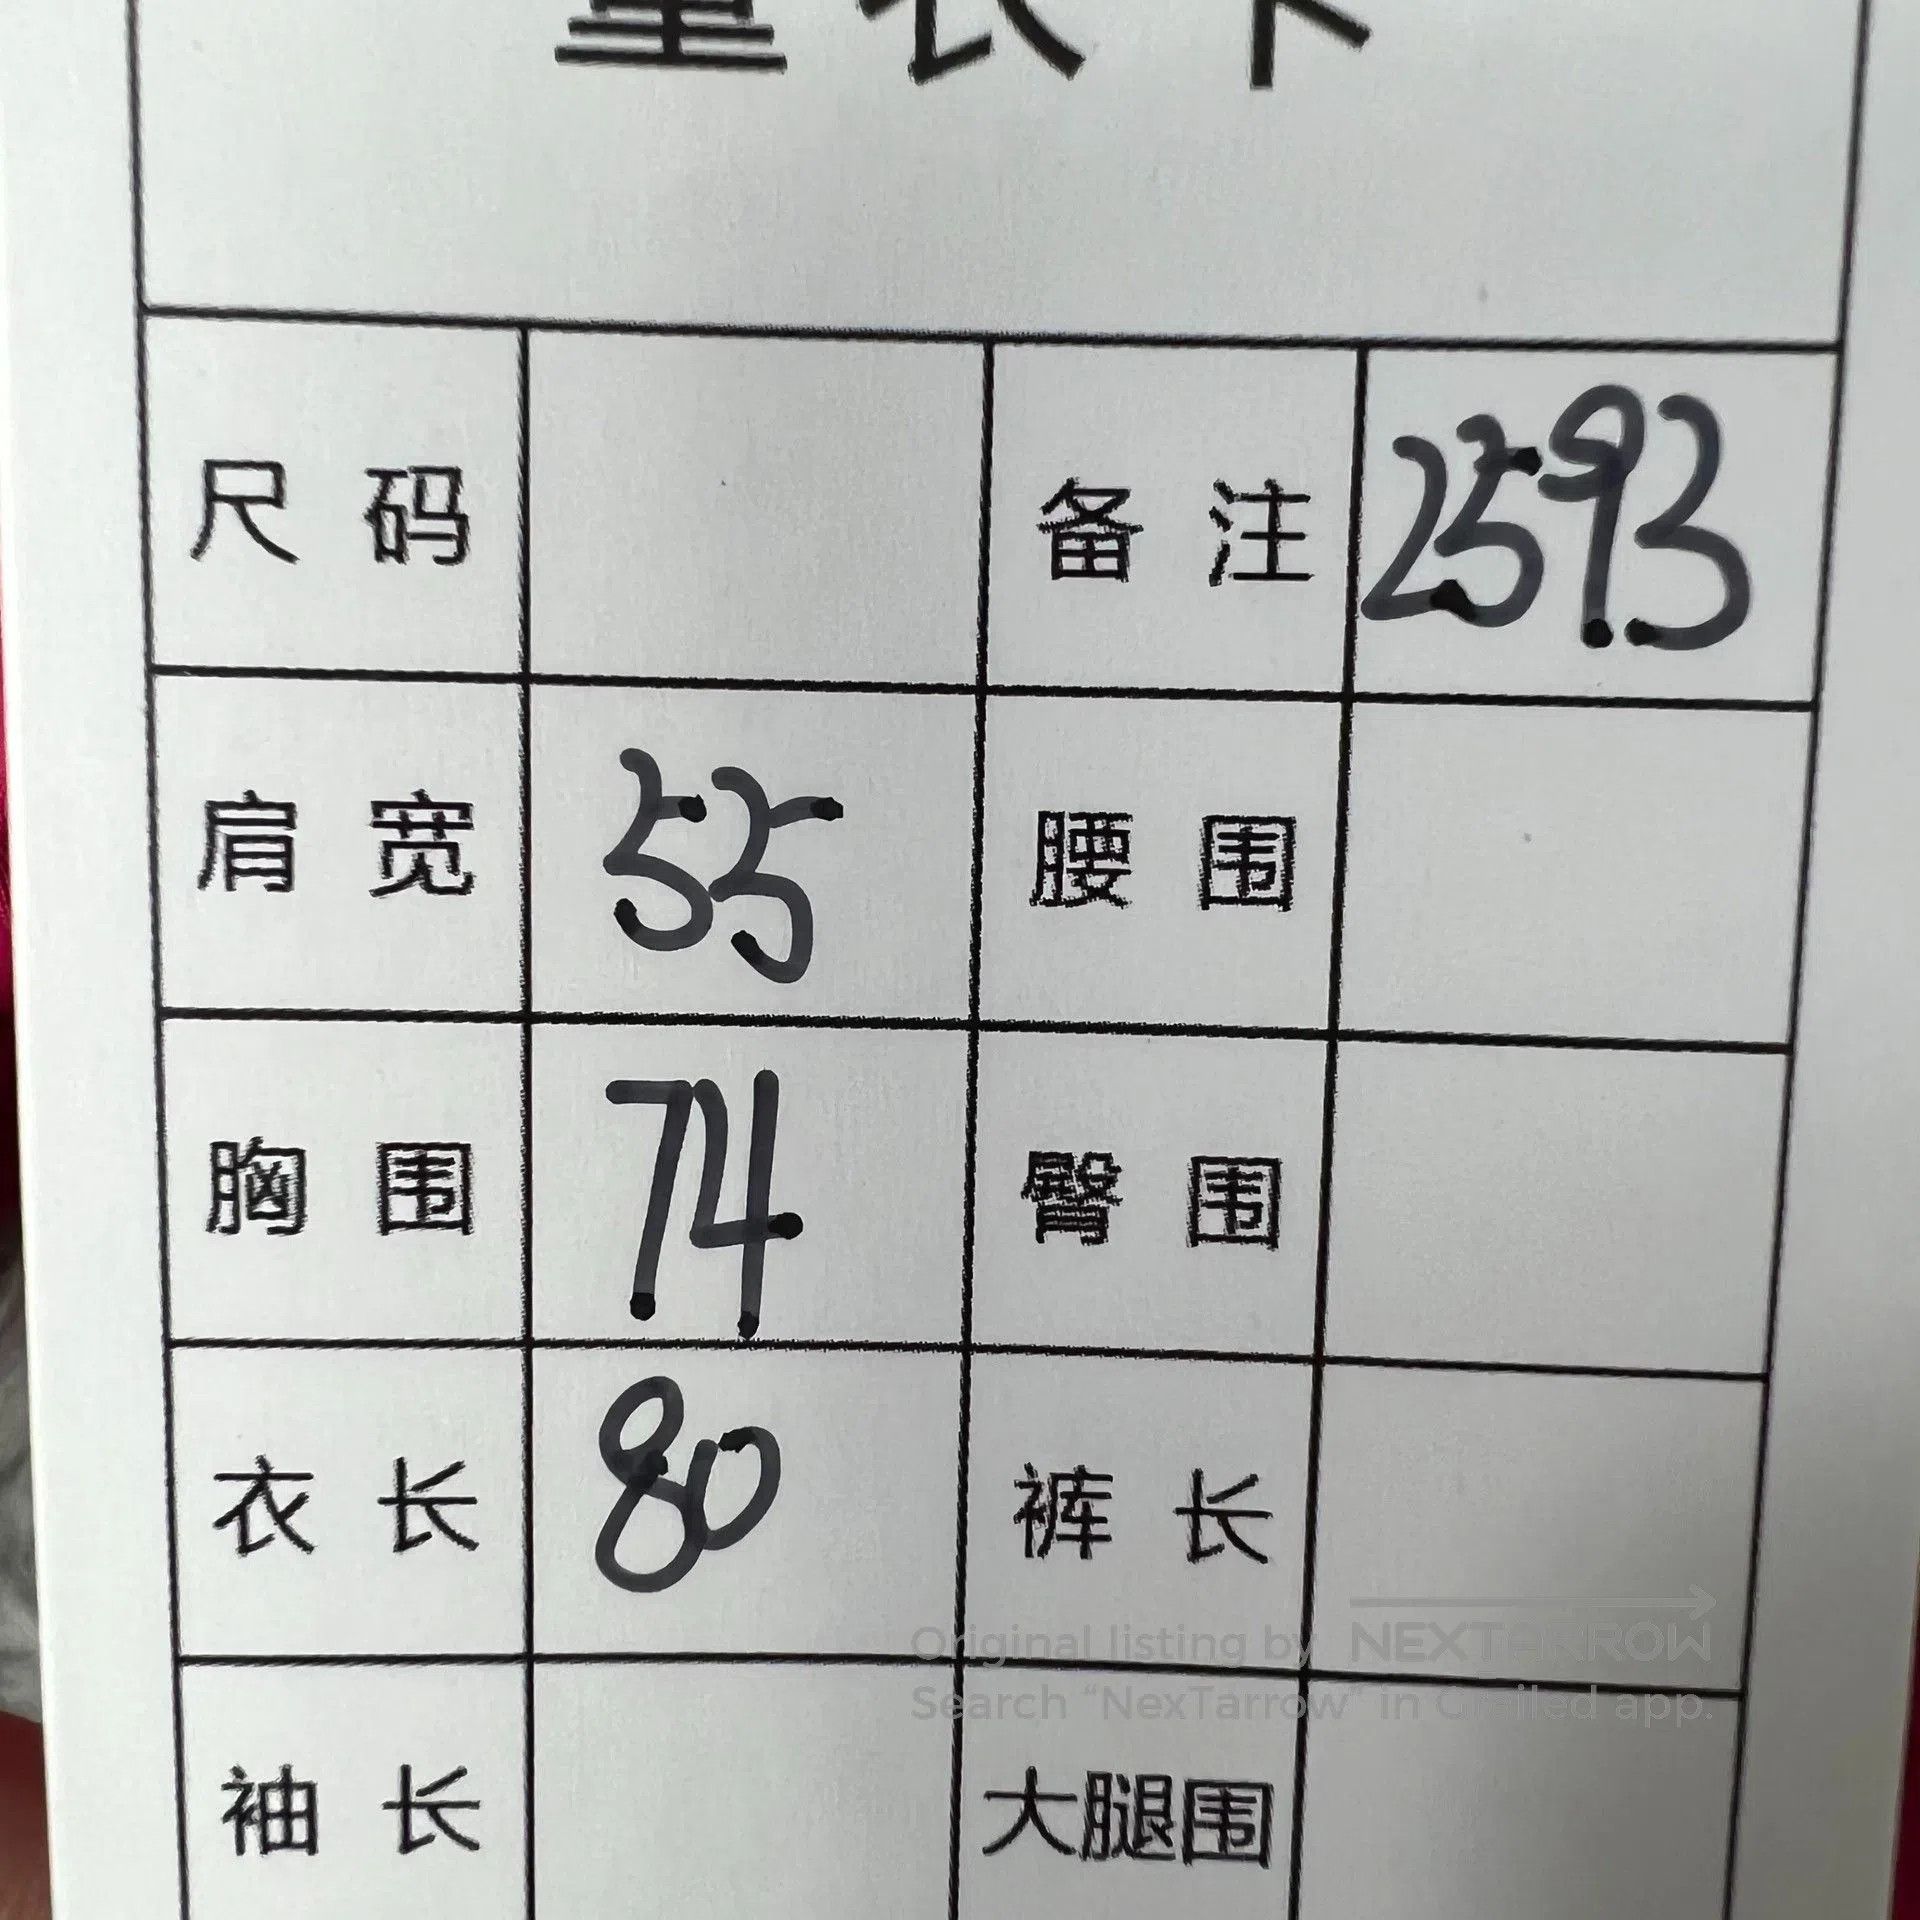 量衣卡
尺码 备注 2593
肩宽 55 腰围
胸围 74 臀围
衣长 80 裤长
Original listing by NEXTARROW
Search “NexTarrow” in Grailed app.
袖长 大腿围